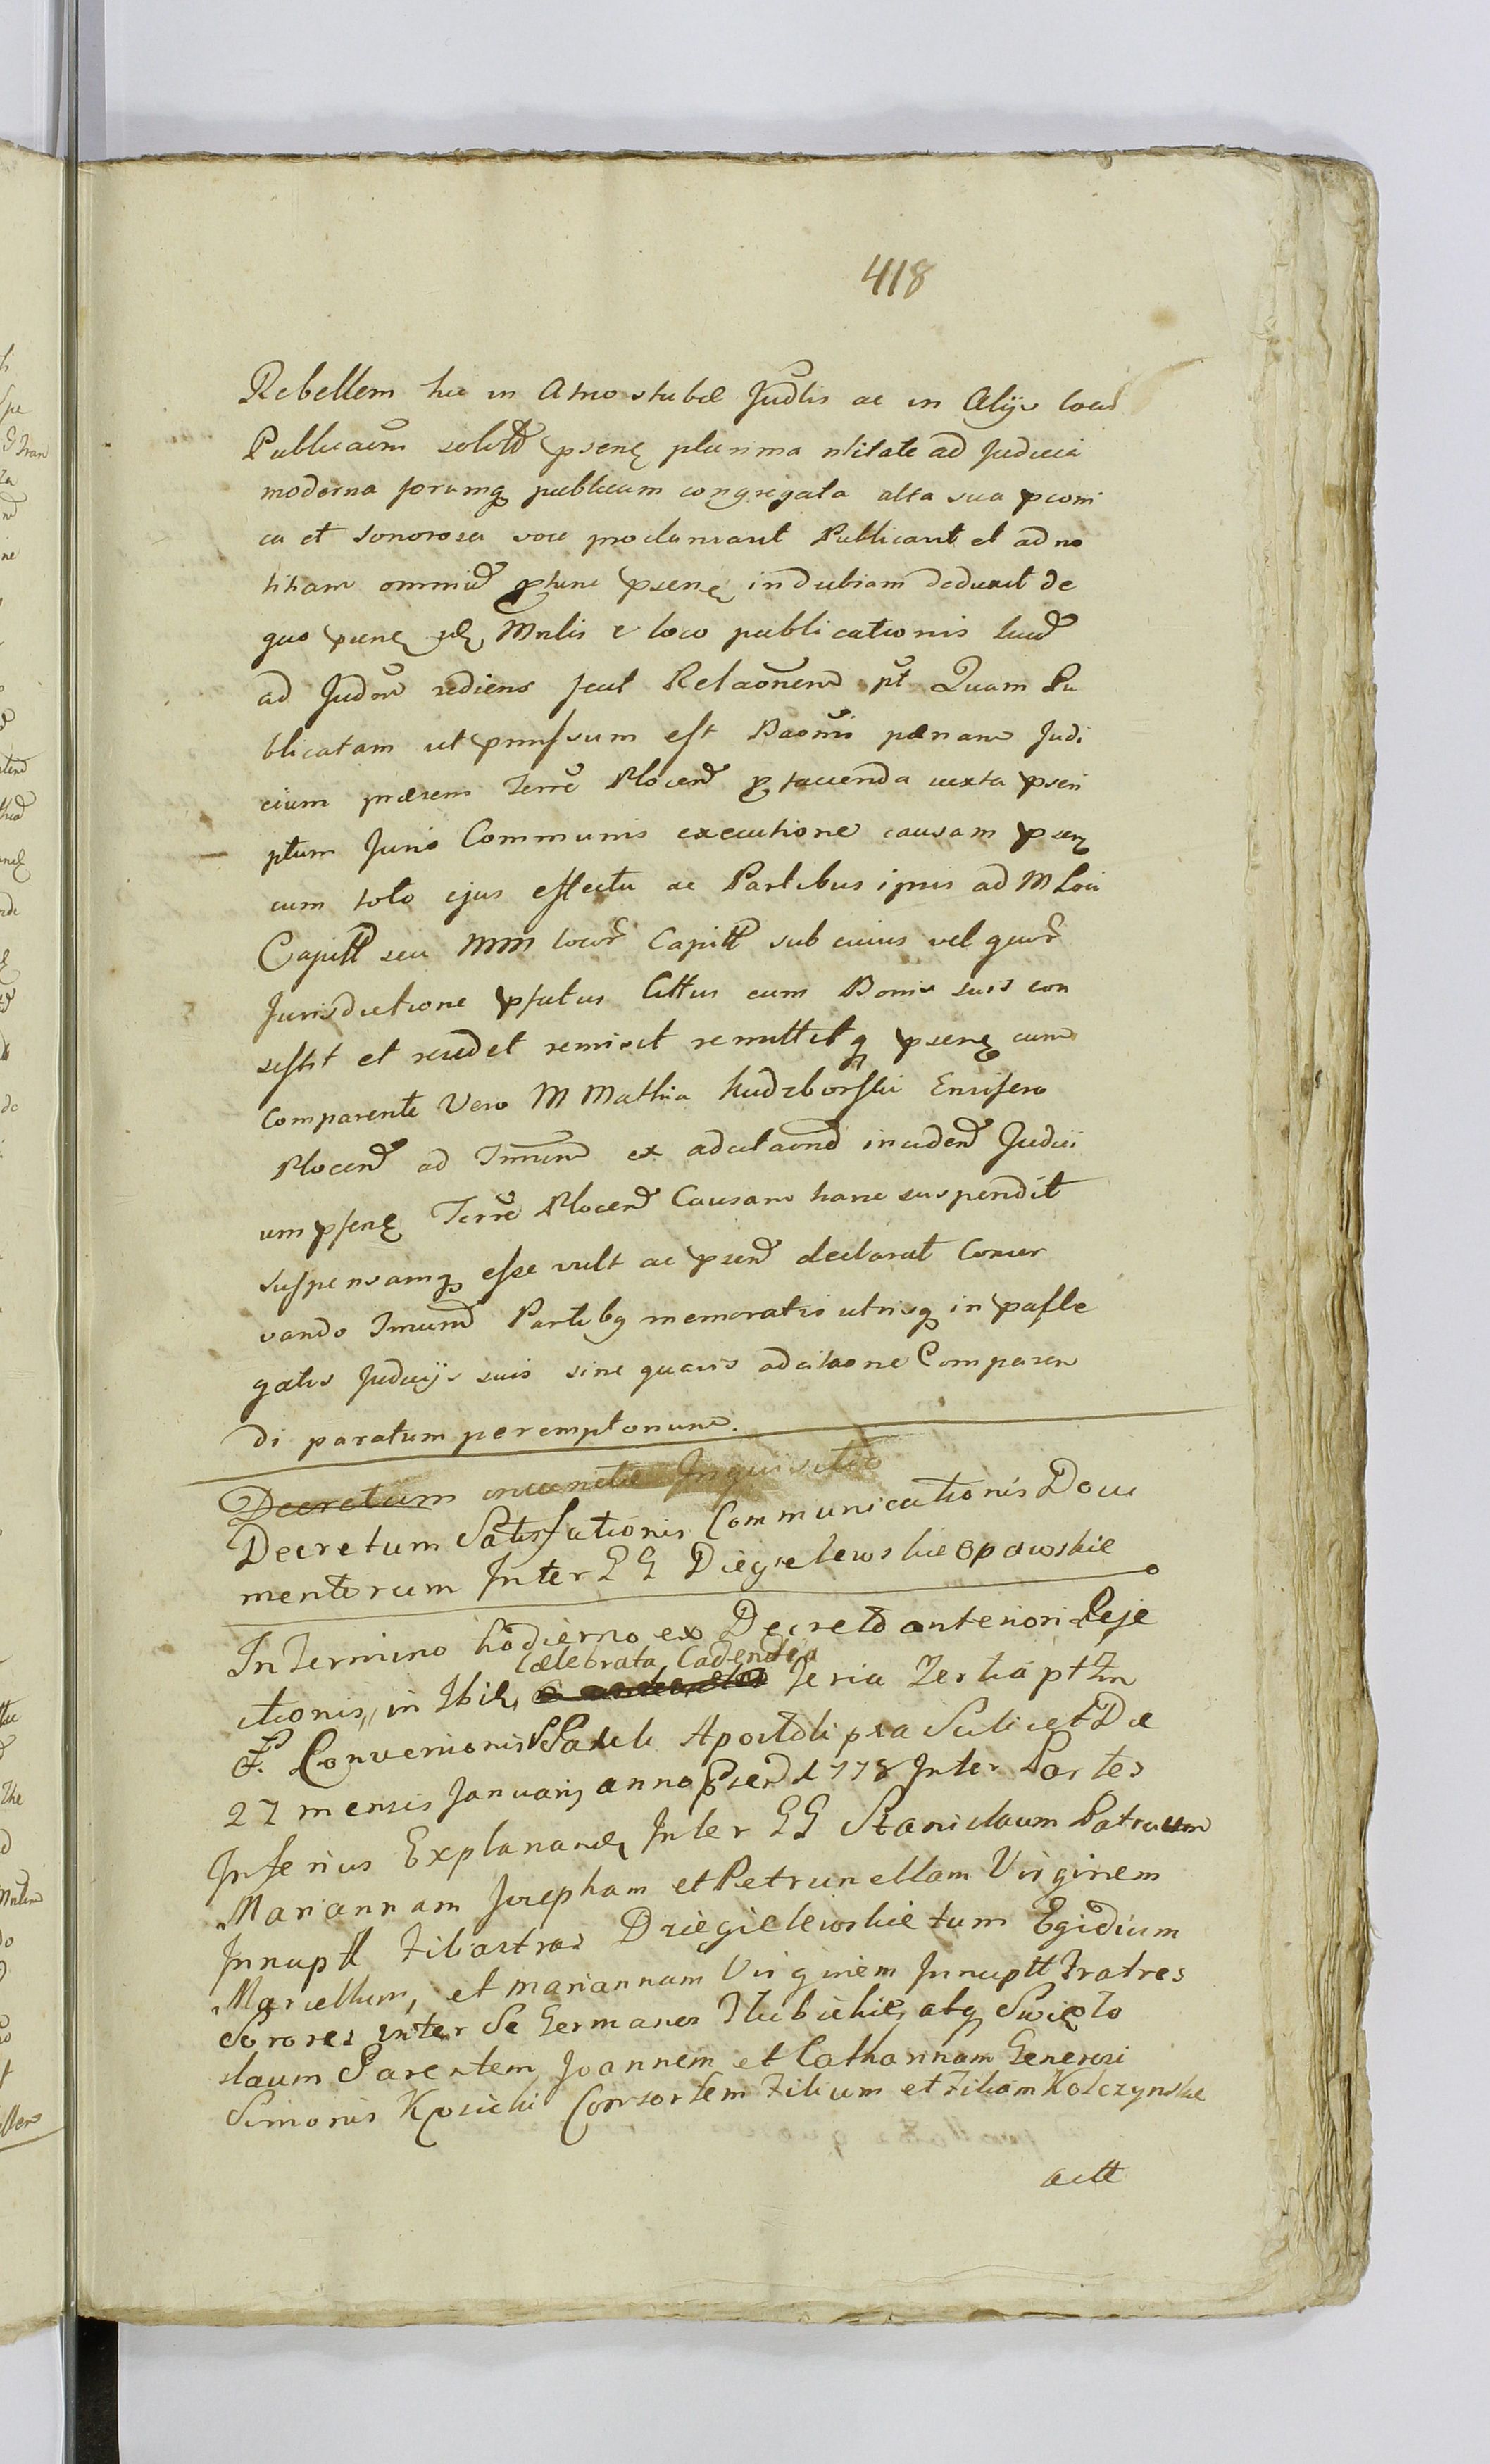 418
Rebellem hic in Atrio stubæ Judlis ac in Alijs locis
Publicaom solitt psenę plurima ntitate ad Judicia
moderna forumq publicum congregata alta sua pconi
ca et sonorosa voce proclamavit Publicavit et ad no
titiam omniu tunc psenę indubiam deduxit de
quo Mnlis e loco publicationis
ad Judm rediens fecit Relaonem pt Quam Pu
blicatam ut pmissum est Baonis pænam Judi
cium præsens Terre Plocen p facienda iuxta pscri
ptum Juris Communis executione causam psenę
cum toto ejus effectu ac Partibus ipsis ad M Loci
Capitt seu MM locor Capitt sub cuius vel quor
Jurisdictione pfatus Cittus cum Bonis suis con
sistit et residet remisit remittitq psenę cum
comparente Vero M Mathia Rudzborski Ensifero
Plocen ad Tmum ex adcitaone inciden Judici
um psenę Terre Plocen Causam hanc suspendit
suspensamq esse vult ac psen declarat Conser
vando Tmum Partibq memoratis utrisq in paste
gatis Judicijs suis sine quavis adcitaone Comparen
di paratum peremptorium.
Decretum Inquisitio
Decretum Satisfationis Communicationis Docu
mentorum Inter GG Dziegielewskie Opawskie
In Termino hodierno ex Decreto anteriori Reje
ctionis, in Celebrata Cadentia Feria Tertia
F. Conversionis S Pauli Apostoli pxa Scilicet Die
27 mensis Januarij anno psen 1778 Inter Partes
Inferius Explanandę Inter GG Stanislaum Patruum
Mariannam Josepham et Petrunellam Virginem
Innuptt Filiastras Dziegielewskie tum Egidium
Marcellum, et Mariannam Virginem Innuptt Fratres
Sorores inter Se Germanos atq Swięto
slaum Parentem Joannem et Catharinam Generosi
Simonis Kosicki Consortem Filium et Filiam Kolczynskie
actt